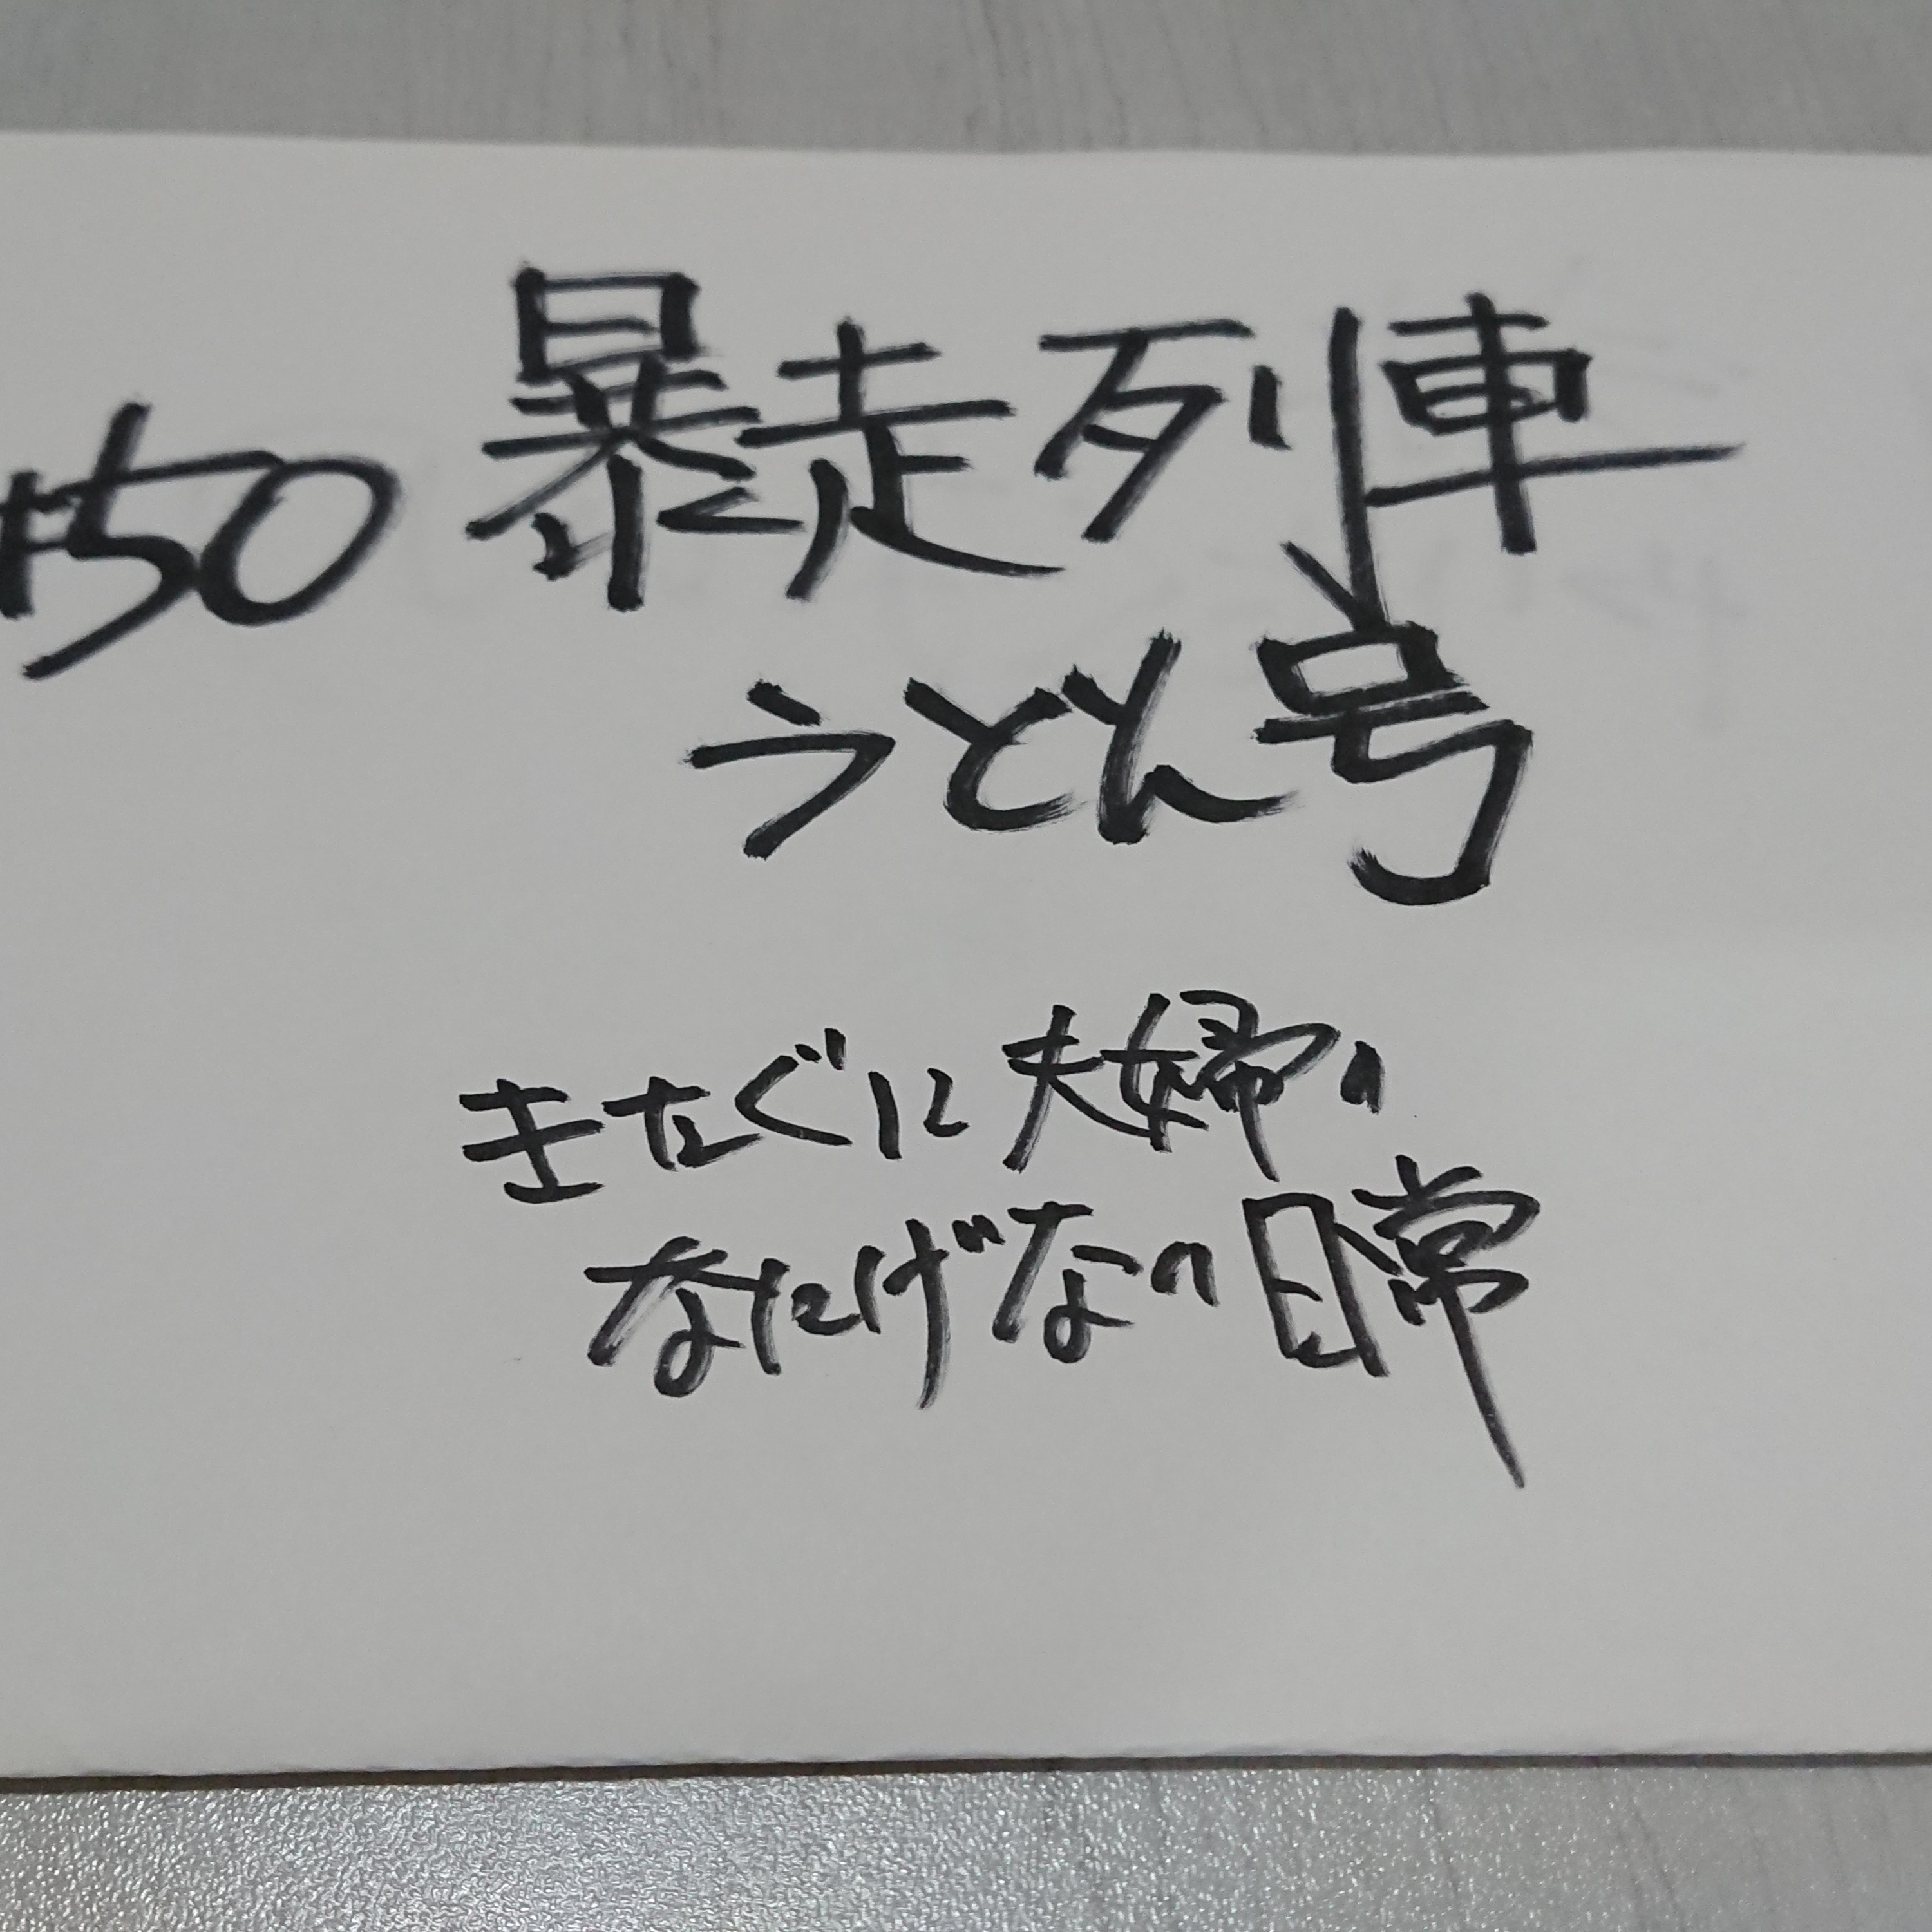 #50 暴走列車
うどん号
きたぐに夫婦の
なにげなの日常